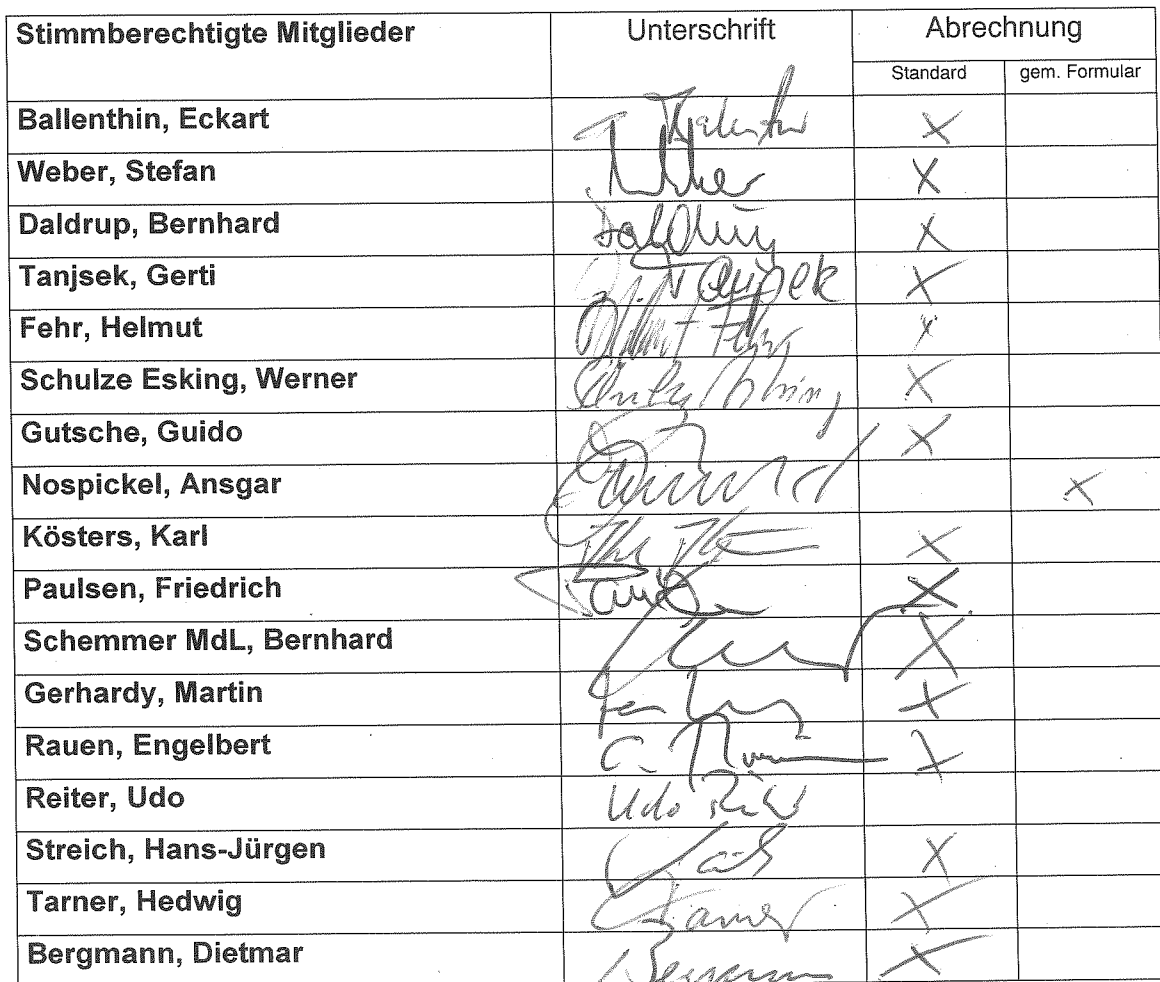 Stimmberechtigte Mitglieder Unterschrift Abrechnung
Standard gem. Formular
Ballenthin, Eckart X
Weber, Stefan X
Daldrup, Bernhard Daldrup X
Tanjsek, Gerti Tanjsek X
Fehr, Helmut Helmut Fehr X
Schulze Esking, Werner X
Gutsche, Guido X
Nospickel, Ansgar X
Kösters, Karl X
Paulsen, Friedrich X
Schemmer MdL, Bernhard X
Gerhardy, Martin X
Rauen, Engelbert X
Reiter, Udo Udo
Streich, Hans-Jürgen X
Tarner, Hedwig Tarner X
Bergmann, Dietmar X